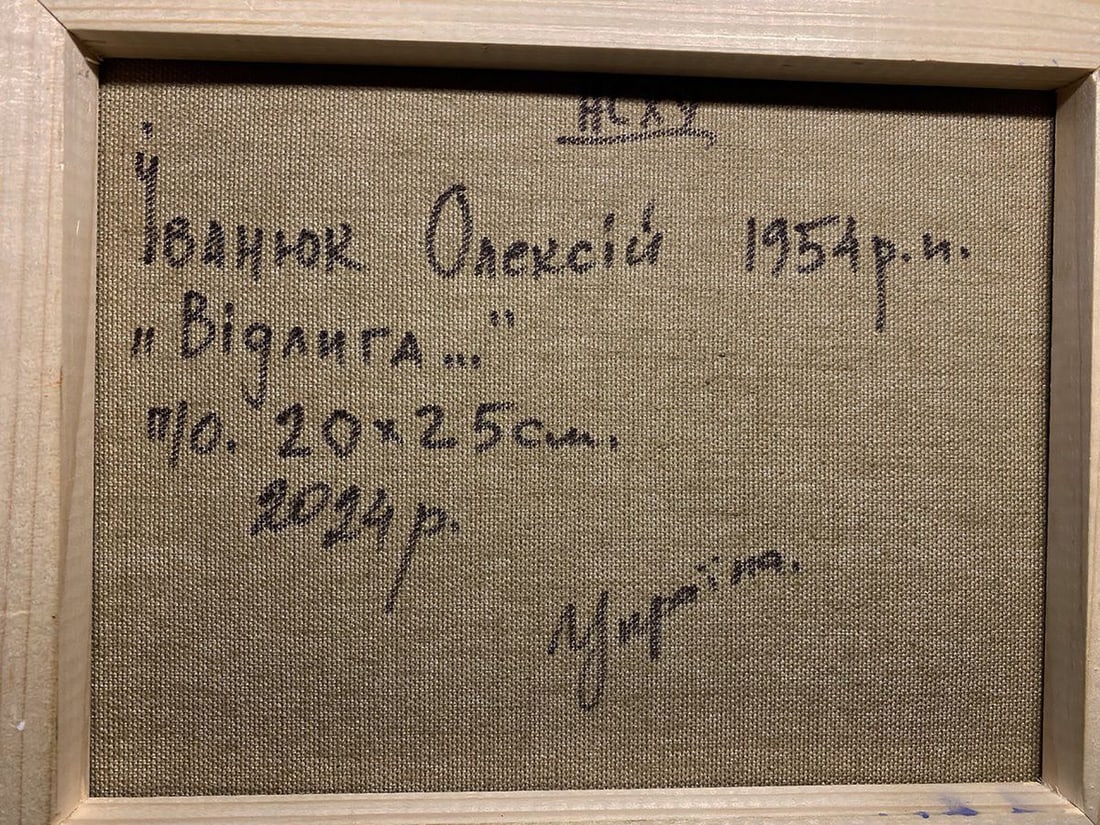 НСХУ
Іванюк Олексій 1954 р.н.
„Відлига..."
п/о. 20×25см.
2024 р.
Україна.